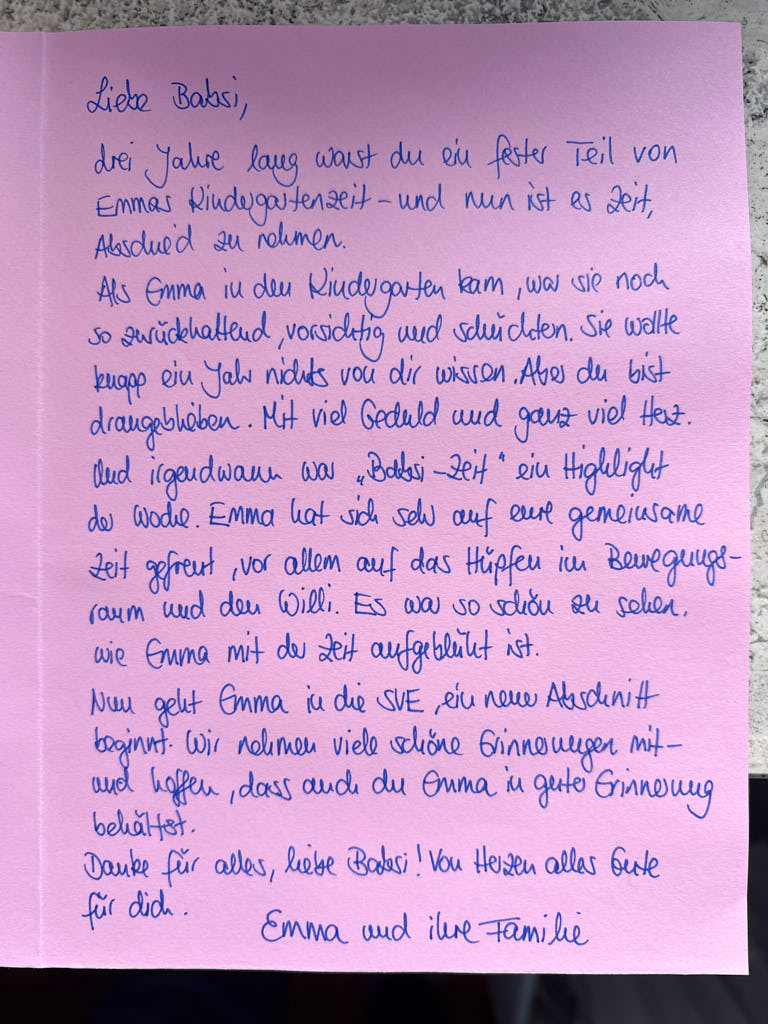 Liebe Babsi,
drei Jahre lang warst du ein fester Teil von
Emmas Kindergartenzeit – und nun ist es Zeit,
Abschied zu nehmen.
Als Emma in den Kindergarten kam, war sie noch
so zurückhaltend, vorsichtig und schüchtern. Sie wollte
knapp ein Jahr nichts von dir wissen. Aber du bist
drangeblieben. Mit viel Geduld und ganz viel Herz.
Und irgendwann war „Babsi-Zeit“ ein Highlight
der Woche. Emma hat sich sehr auf eure gemeinsame
Zeit gefreut, vor allem auf das Hüpfen im Bewegungs-
raum und den Willi. Es war so schön zu sehen,
wie Emma mit der Zeit aufgeblüht ist.
Nun geht Emma in die SVE, ein neuer Abschnitt
beginnt. Wir nehmen viele schöne Erinnerungen mit –
und hoffen, dass auch du Emma in guter Erinnerung
behältst.
Danke für alles, liebe Babsi! Von Herzen alles Gute
für dich.
Emma und ihre Familie